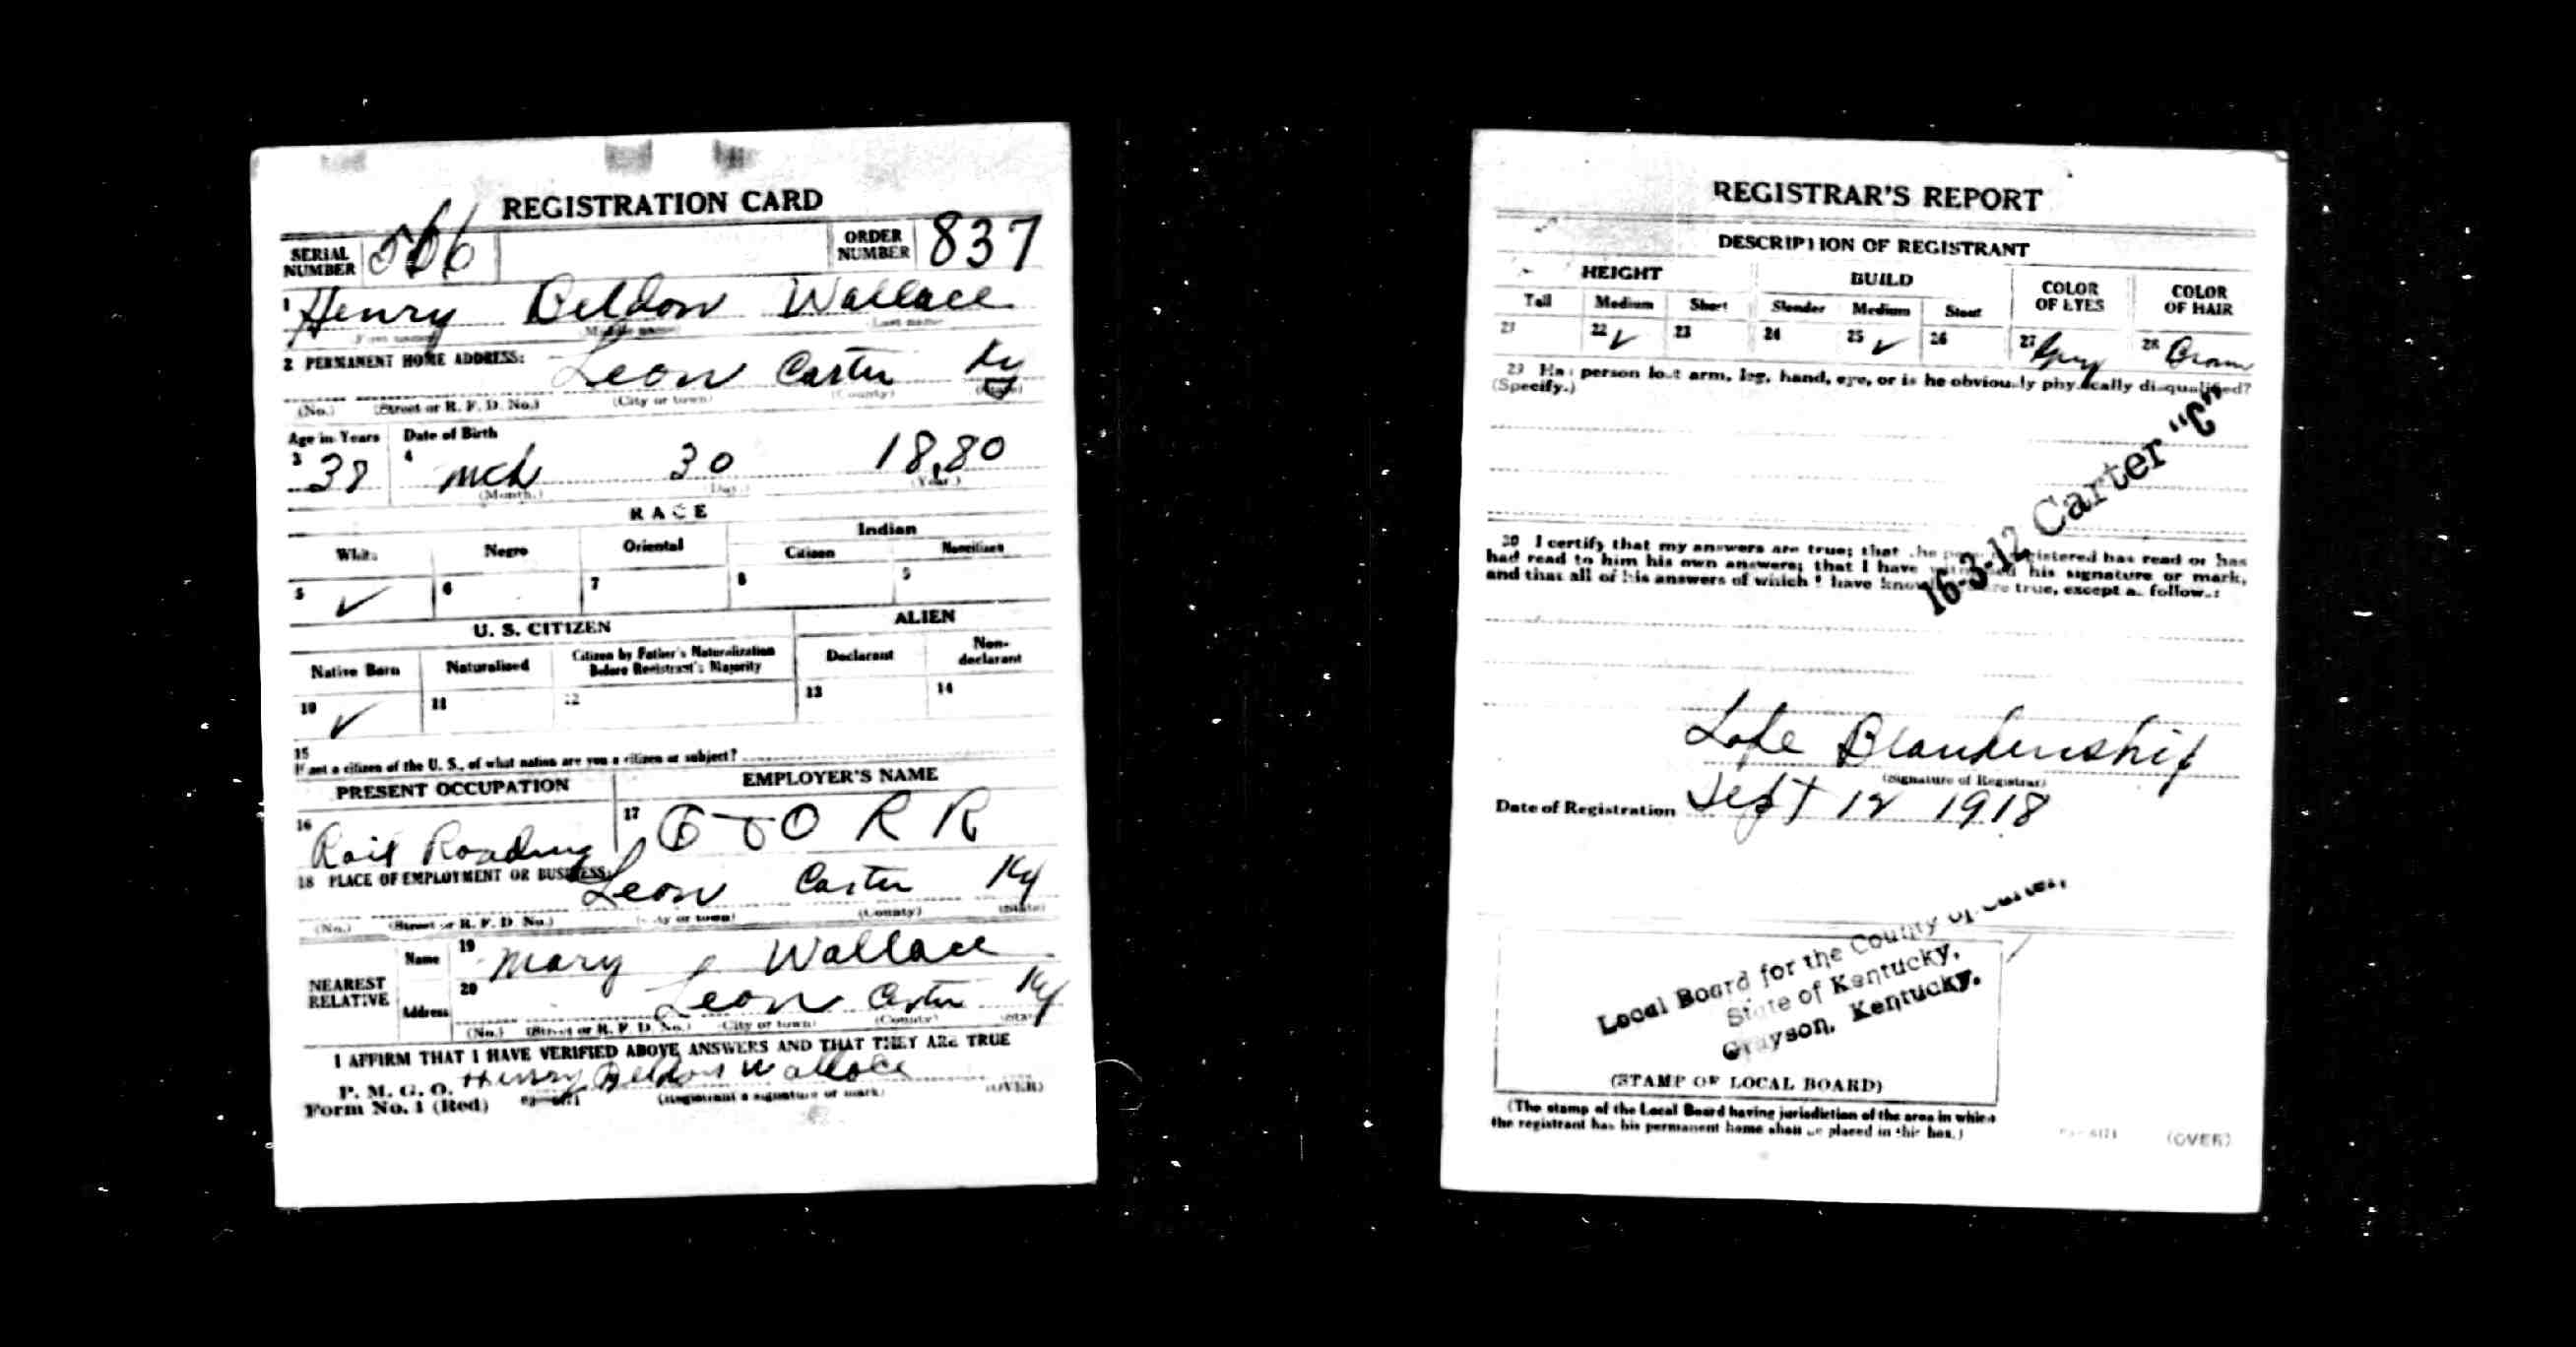 REGISTRATION CARD
SERIAL NUMBER 566 ORDER NUMBER 837
1 Henry Beldon Wallace
First name Middle name Last name
2 PERMANENT HOME ADDRESS: Leon Carter Ky
(No.) (Street or R. F. D. No.) (City or town) (County) (State)
Age in Years Date of Birth
3 38 4 Mch 30 18,80
(Month.) (Day.) (Year.)
RACE
White Negro Oriental Indian
Citizen Noncitizen
5 ✓ 6 7 8 9
U. S. CITIZEN ALIEN
Native Born Naturalized Citizen by Father's Naturalization Before Registrant's Majority Declarant Non-declarant
10 ✓ 11 12 13 14
15
If not a citizen of the U. S., of what nation are you a citizen or subject?
PRESENT OCCUPATION EMPLOYER'S NAME
16 Rail Roading 17 C & O R R
18 PLACE OF EMPLOYMENT OR BUSINESS: Leon Carter Ky
(No.) (Street or R. F. D. No.) (City or town) (County) (State)
NEAREST RELATIVE
Name 19 Mary Wallace
Address 20 Leon Carter Ky
(No.) (Street or R. F. D. No.) (City or town) (County) (State)
I AFFIRM THAT I HAVE VERIFIED ABOVE ANSWERS AND THAT THEY ARE TRUE
P. M. G. O. Henry Beldon Wallace
Form No. 1 (Red) (Registrant's signature or mark) (OVER)
REGISTRAR'S REPORT
DESCRIPTION OF REGISTRANT
HEIGHT BUILD COLOR OF EYES COLOR OF HAIR
Tall Medium Short Slender Medium Stout
21 22 ✓ 23 24 25 ✓ 26 27 Gray 28 Brown
29 Has person lost arm, leg, hand, eye, or is he obviously physically disqualified?
(Specify.)
16-3-12 Carter "C"
30 I certify that my answers are true; that the person registered has read or has
had read to him his own answers; that I have witnessed his signature or mark,
and that all of his answers of which I have knowledge are true, except as follows:
Blankenship
(Signature of Registrar)
Date of Registration Sept 12 1918
Local Board for the County of Carter,
State of Kentucky,
Grayson, Kentucky.
(STAMP OF LOCAL BOARD)
(The stamp of the Local Board having jurisdiction of the area in which
the registrant has his permanent home shall be placed in this box.)
(OVER)